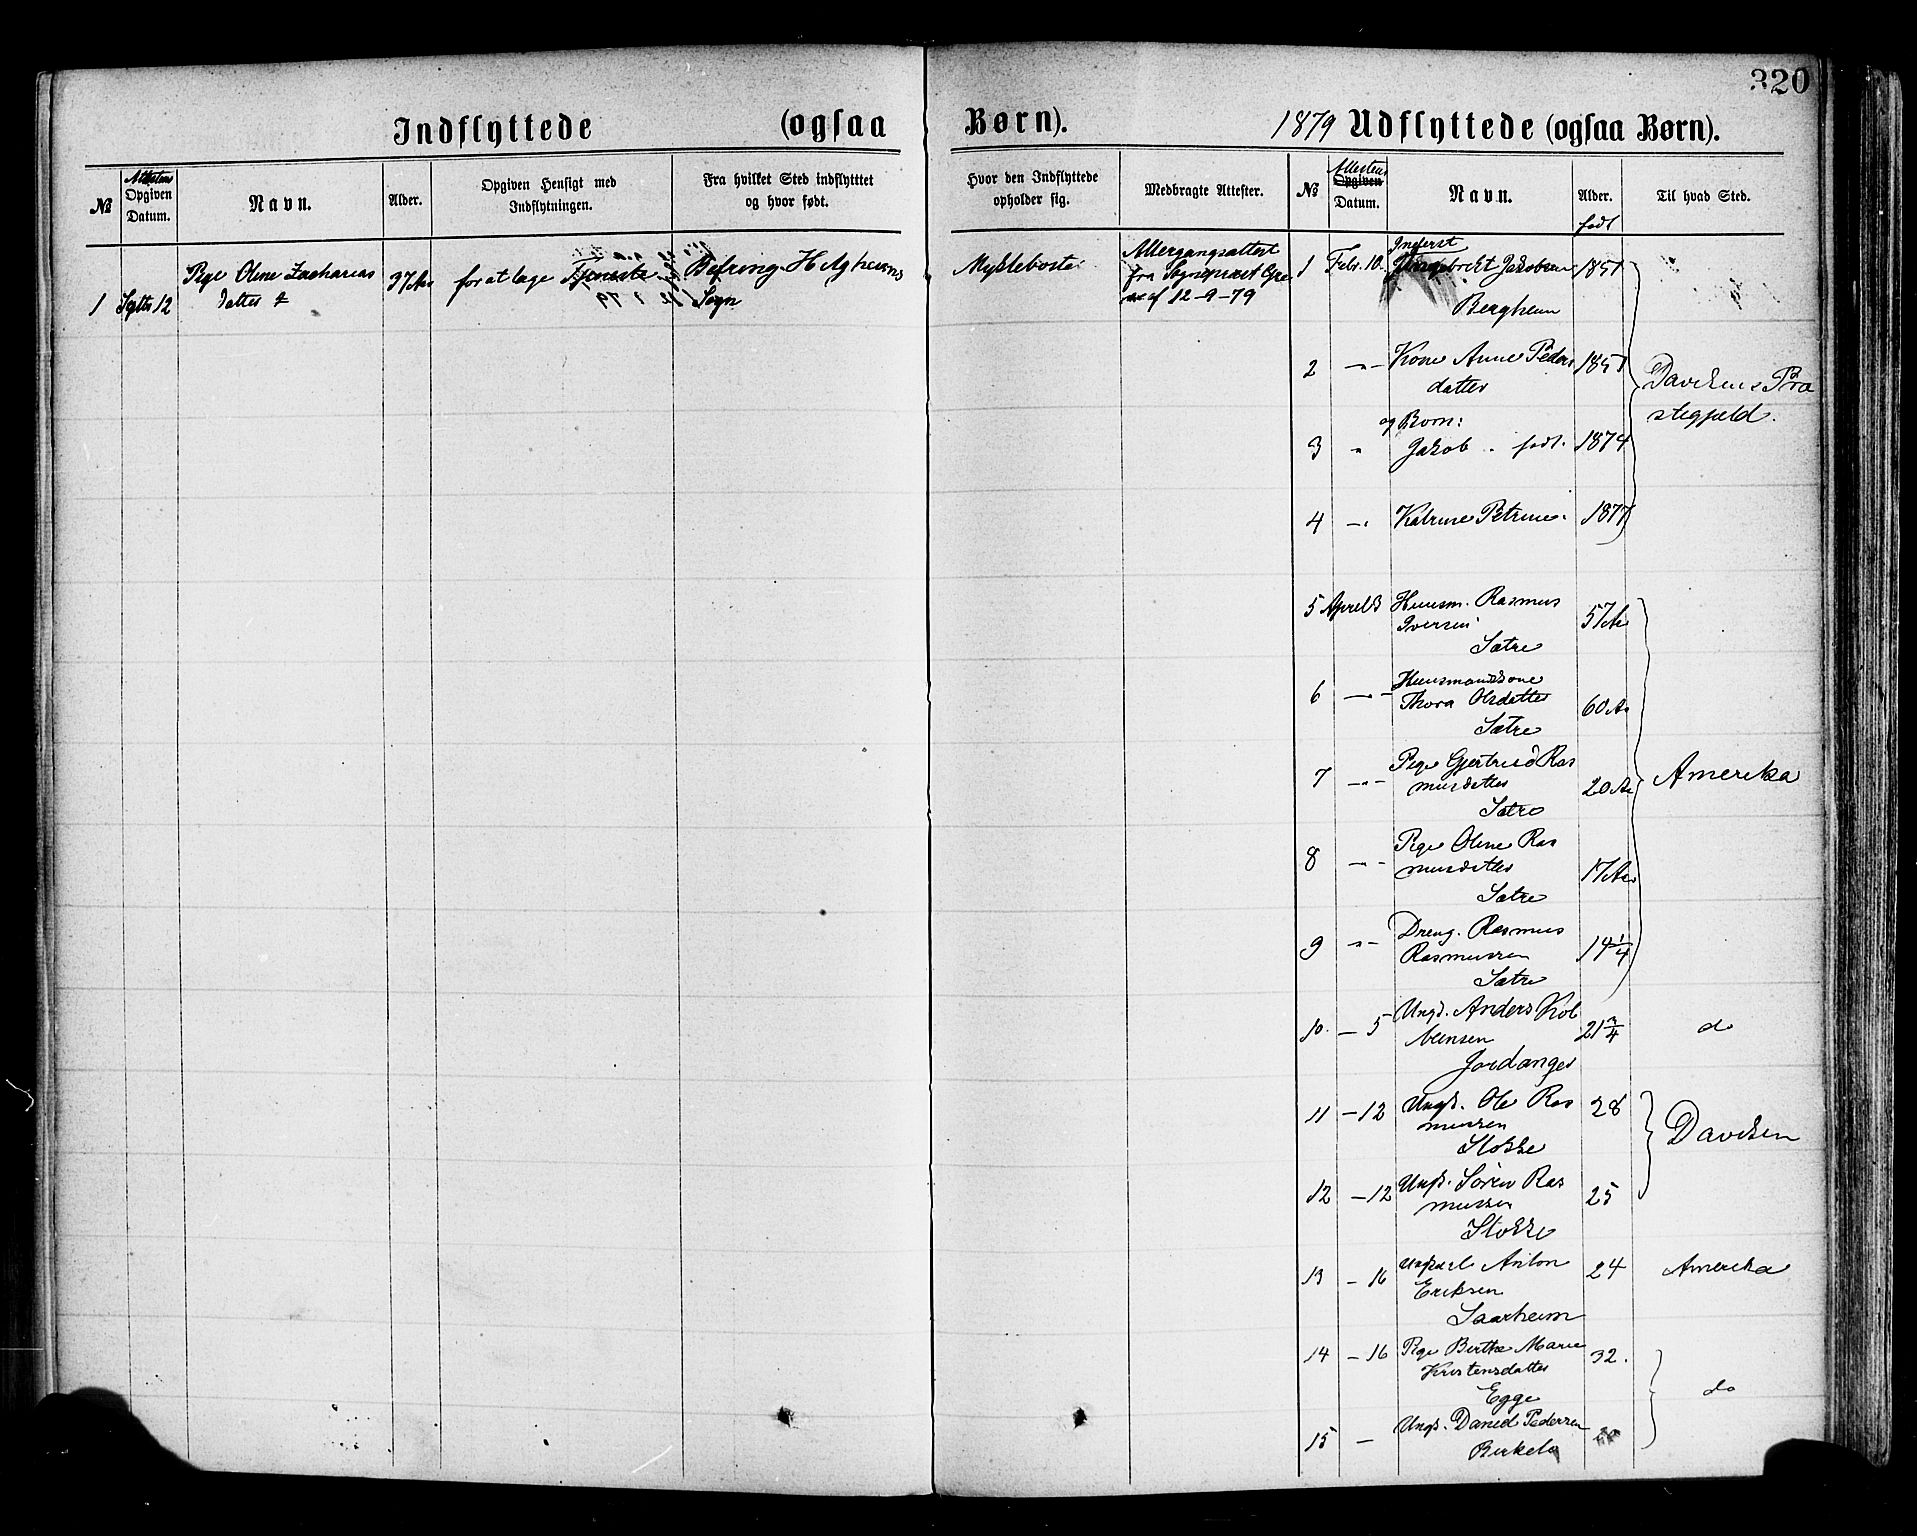 320
Indflyttede (ogsaa Børn).
1879 Udflyttede (ogsaa Børn).
№
Attestens
Opgiven
Datum.
Navn.
Alder.
Opgiven Hensigt med
Indflytningen.
Fra hvilket Sted indflytttet
og hvor født.
Hvor den Indflyttede
opholder sig.
Medbragte Attester.
1
Septbr 12
Pige Oline Zacharias
datter
37 Aar
for at tage Tjeneste
Befring Høgheims
Sogn
Myklebost
Altergangsattest
fra Sognepræst
af 12-9-79
№
Attestens
Opgiven
Datum.
Navn.
Alder.
født
Til hvad Sted.
1 Febr. 10. Inderst
Ingebrekt Jakobsen 1851
Bergheim
2 - " - Kone Anne Peders 1851
datter
Davikens Præ
stegjeld.
og Børn:
3 " Jakob . født. 1874
4 - " Katrine Petrine 1877
5 April 3 Huusm. Rasmus 57 Aar
Iversen
Sætre
6 - " - Huusmandskone
Thora Olsdatter 60 Aar
Sætre
7 - " - Pige Gjertrud Ras
musdatter 20 Aar
Sætre
Amerika
8 - " - Pige Oline Ras
musdatter 17 Aar
Sætre
9 " - Dreng. Rasmus
Rasmussen 14 1/4
Sætre
10. - 5 Ungk. Anders Kol
beinsen 21 3/4 do
Jordanger
11 - 12 Ungk. Ole Ras 28
mussen
Stokke
Daviken
12 - 12 Ungk. Søren Ras 25
mussen
Stokke
13 - 16 Ungkarl Anton 24 Amerika
Eriksen
Saarheim
14 - 16 Pige Berthe Marie 32.
Kristensdatter
Egge
do
15 - Ungk. Daniel Pedersen
Birkelo